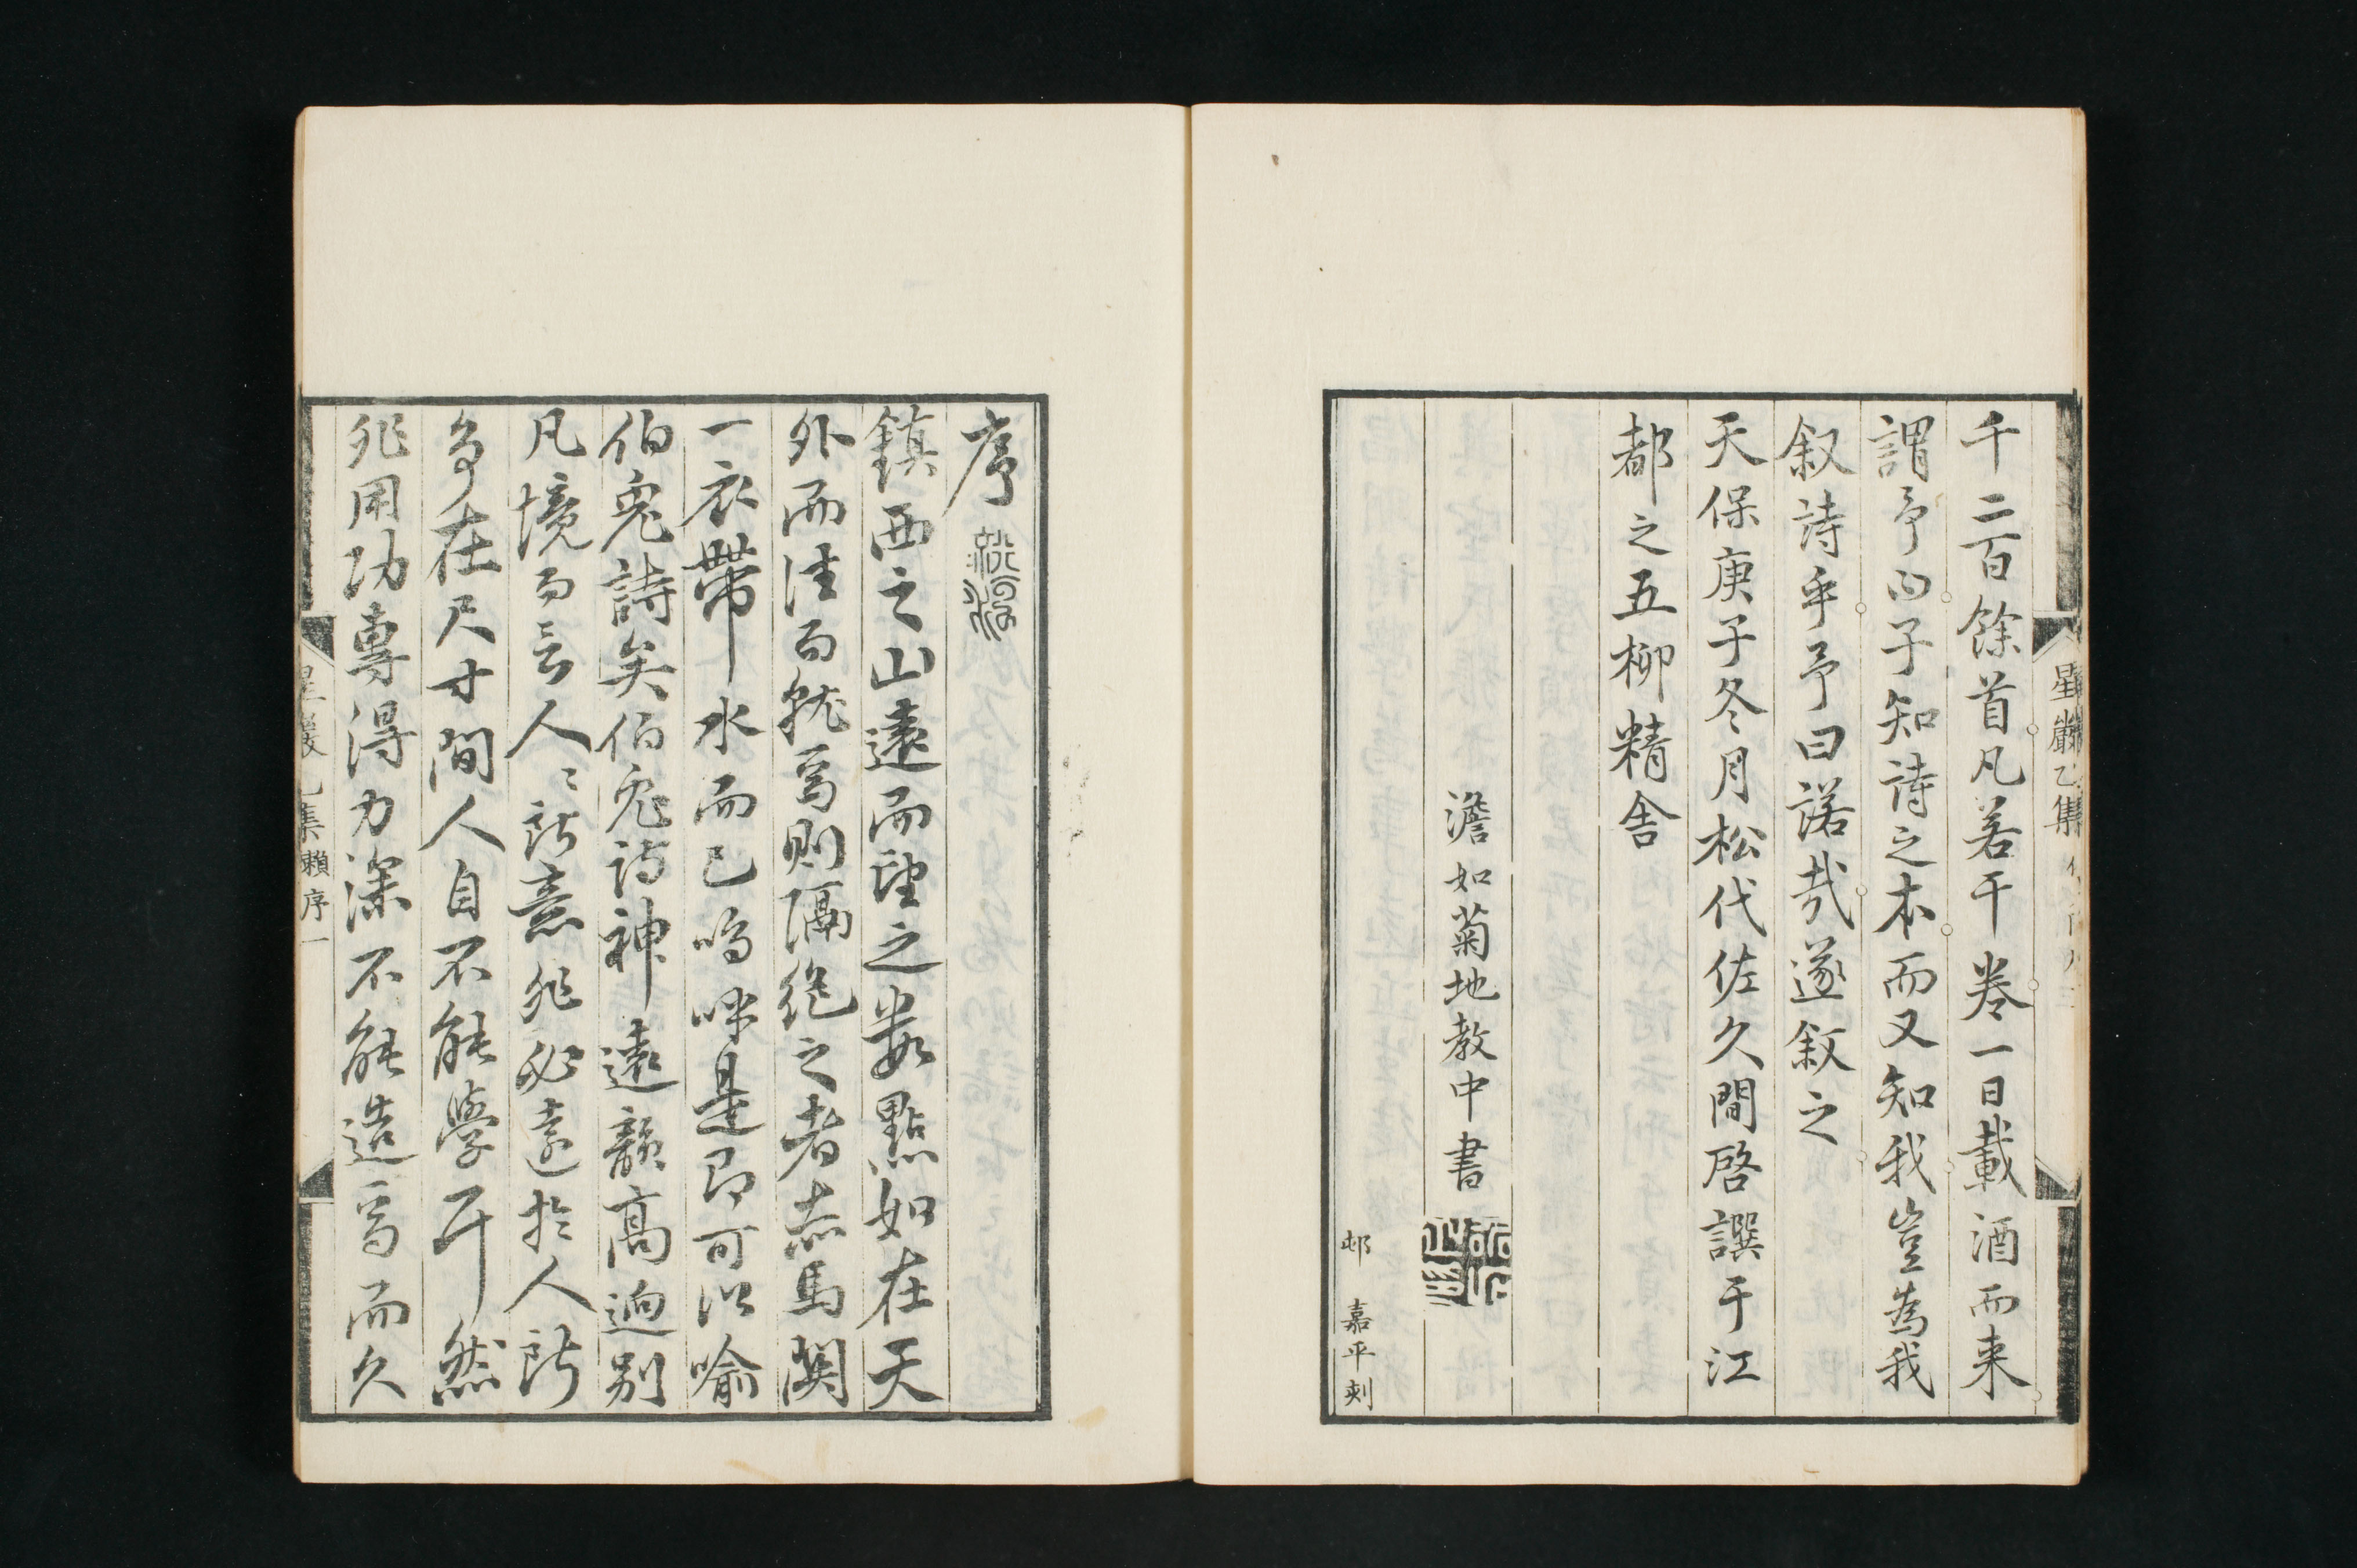 星巖乙集
千二百餘首凡若干卷一日載酒而来
謂予曰子知詩之本而又知我豈為我
叙詩乎予曰諾哉遂叙之
天保庚子冬月松代佐久間啓譔于江
都之五柳精舎
澹如菊地教中書
邨嘉平刻
序
鎮西之山遠而望之數點如在天
外而注而就焉則隔絶之者赤馬関
一衣帶水而已嗚呼是即可以喻
伯兔詩矣伯兔詩神遠韻高迥別
凡境而言人々所意非必遠於人所
爭在尺寸間人自不能學耳然
非用功專得力深不能造焉而久
星巖乙集 賴序 一